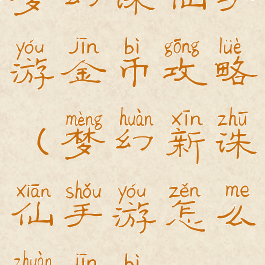 梦幻诛仙手
yóu jīn bì gōng lüè
游金币攻略
mèng huàn xīn zhū
（梦幻新诛
xiān shǒu yóu zěn me
仙手游怎么
zhuàn jīn bì